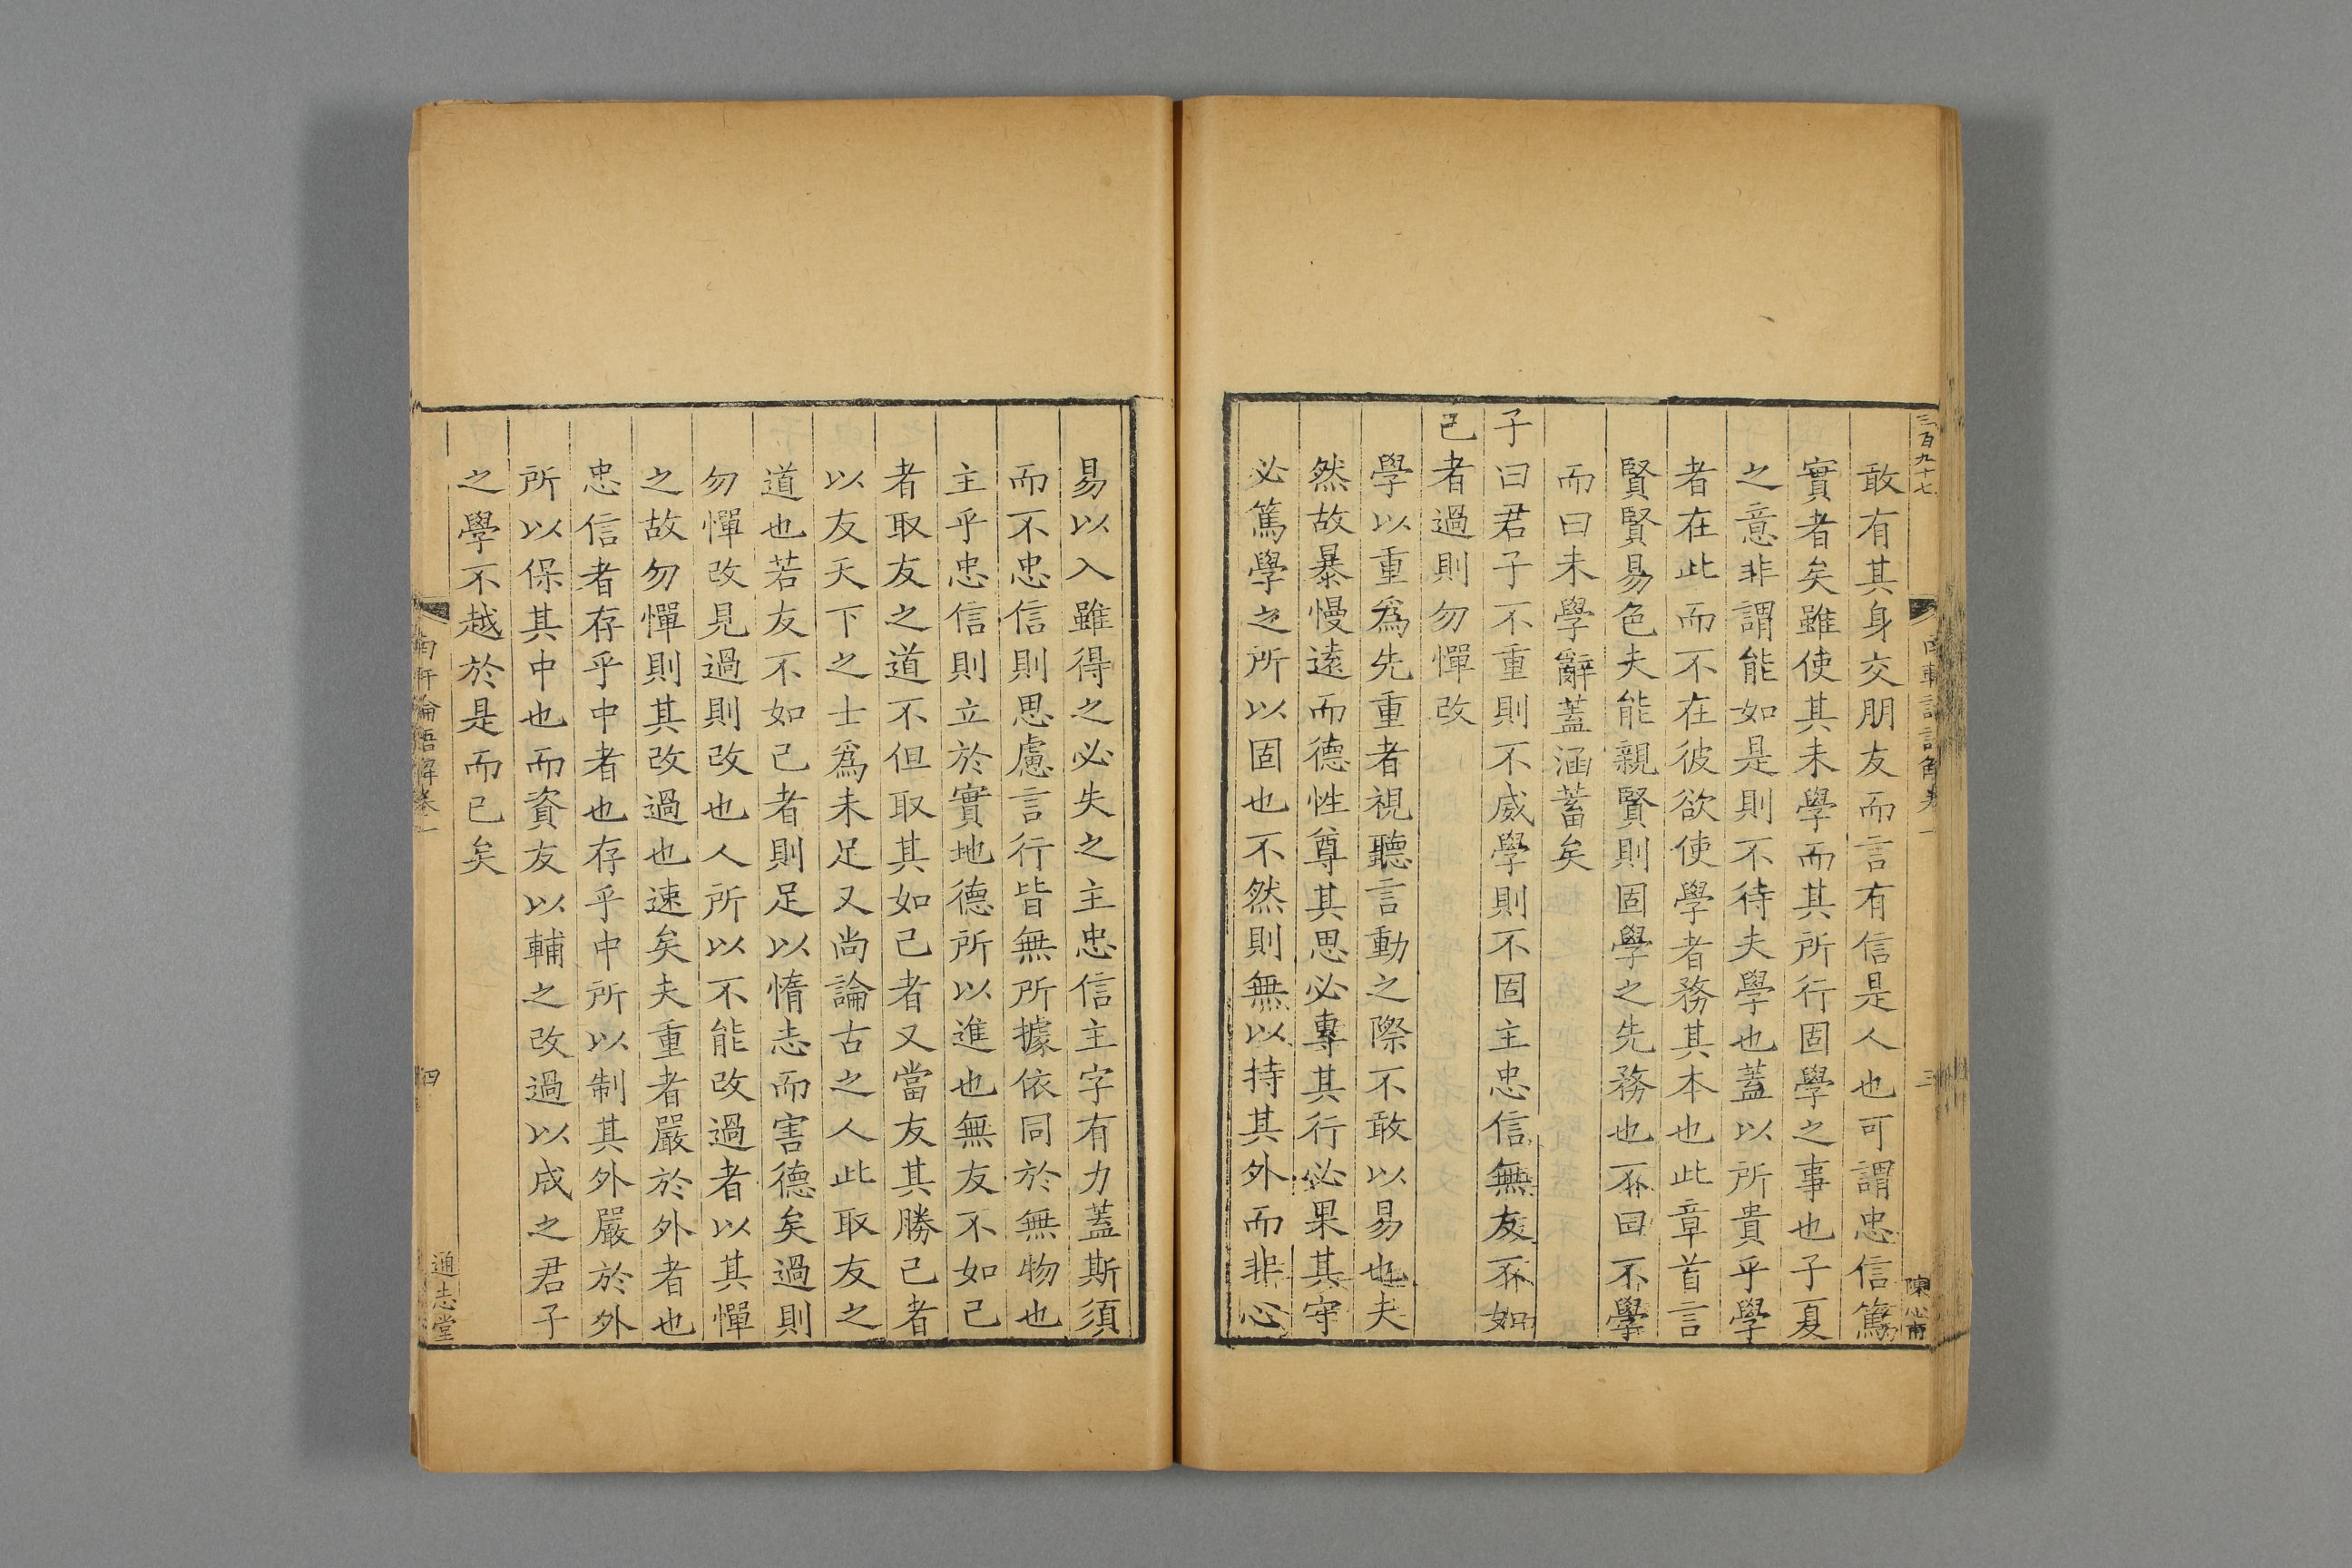 三百九十七
敢有其身交朋友而言有信是人也可謂忠信篤
實者矣雖使其未學而其所行固學之事也子夏
之意非謂能如是則不待夫學也蓋以所貴乎學
者在此而不在彼欲使學者務其本也此章首言
賢賢易色夫能親賢則固學之先務也不曰不學
而曰未學辭蓋涵蓄矣
子曰君子不重則不威學則不固主忠信無友不如
己者過則勿憚改
學以重爲先重者視聽言動之際不敢以易也夫
然故暴慢遠而德性尊其思必專其行必果其守
必篤學之所以固也不然則無以持其外而非心
易以入雖得之必失之主忠信主字有力蓋斯須
而不忠信則思慮言行皆無所據依同於無物也
主乎忠信則立於實地德所以進也無友不如己
者取友之道不但取其如己者又當友其勝己者
以友天下之士爲未足又尚論古之人此取友之
道也若友不如己者則足以惰志而害德矣過則
勿憚改見過則改也人所以不能改過者以其憚
之故勿憚則其改過也速矣夫重者嚴於外者也
忠信者存乎中者也存乎中所以制其外嚴於外
所以保其中也而資友以輔之改過以成之君子
之學不越於是而已矣
南軒論語解卷一
四
通志堂